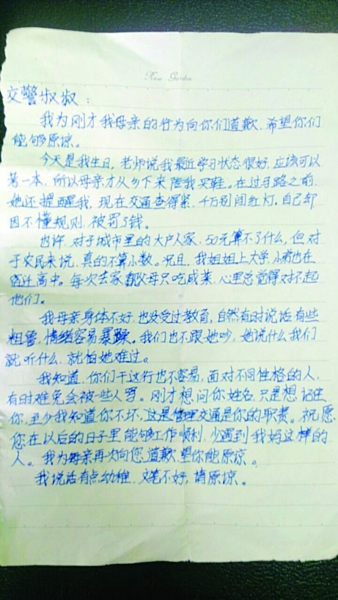 Garden
交警叔叔：
我为刚才我母亲的行为向你们道歉，希望你们
能够原谅。
今天是我生日，老师说我最近学习状态很好，应该可以
第一本，所以母亲才从乡下来陪我买鞋。在过马路之前，
她还提醒我，现在交通查得紧，千万别闯红灯。自己却
因不懂规则，被罚了钱。
也许，对于城市里的大户人家，50元算不了什么，但对
于农民来说，真的不算小数。况且，我姐姐上大学，小弟也在
宿迁高中。每次去家 父母只吃咸菜，心里总觉得对不起
他们。
我母亲身体不好，也没受过教育，自然有时说话有些
粗鲁，情绪容易暴躁。我们也不跟她吵，她说什么我们
就听什么，就怕她难过。
我知道，你们干这行也不容易，面对不同性格的人，
有时难免会被些人骂。刚才想问你姓名，只是想记住
你，至少我知道你不坏，这是管理交通是你的职责。祝愿
您在以后的日子里能够工作顺利，少遇到我妈这样的
人。我为母亲再次向您道歉，望你能原谅。
我说话有点幼稚，文笔不好，请原谅。